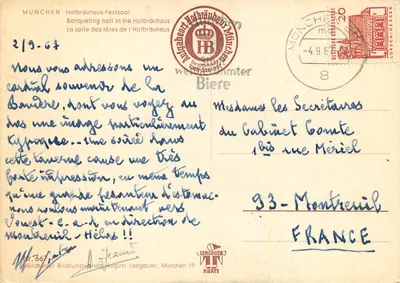 MÜNCHEN Hofbräuhaus-Festsaal
Banqueting hall in the Hofbräuhaus
La salle des fêtes de l'Hofbräuhaus
2/9-67
Nous vous adressons un
cordial souvenir de la
Bavière, dont vous voyez au
dos une image particulièrement
typique.. Une soirée dans
cette taverne cause une très
forte impression, en même temps
qu'une grande pesanteur d'estomac-
nous roulons maintenant vers
l'ouest-C-a-d en direction de
Montreuil-Hélas!!
Aufgabeort Hofbräuhaus München
HB
Biere
MÜNCHEN
-4.9.6
8
20
Mesdames les Secrétaires
du Cabinet Comte
1bis rue Mériel
93-Montreuil
FRANCE
LENGAUER
KARTE
August Lengauer, München 19